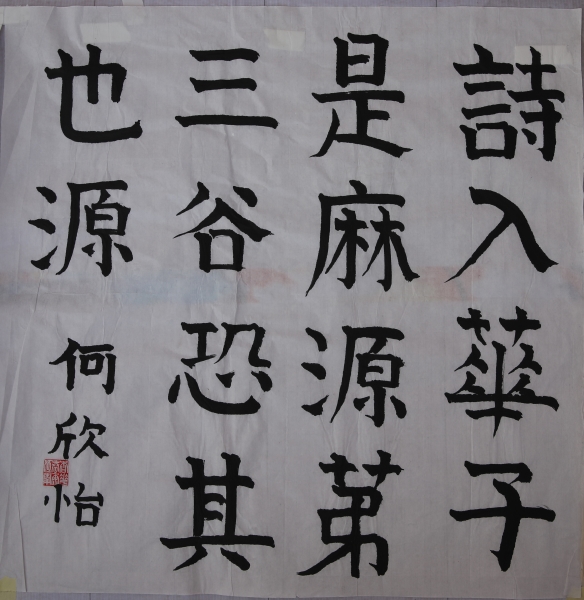 詩入華子
是麻源苐
三谷恐其
也源
何欣怡